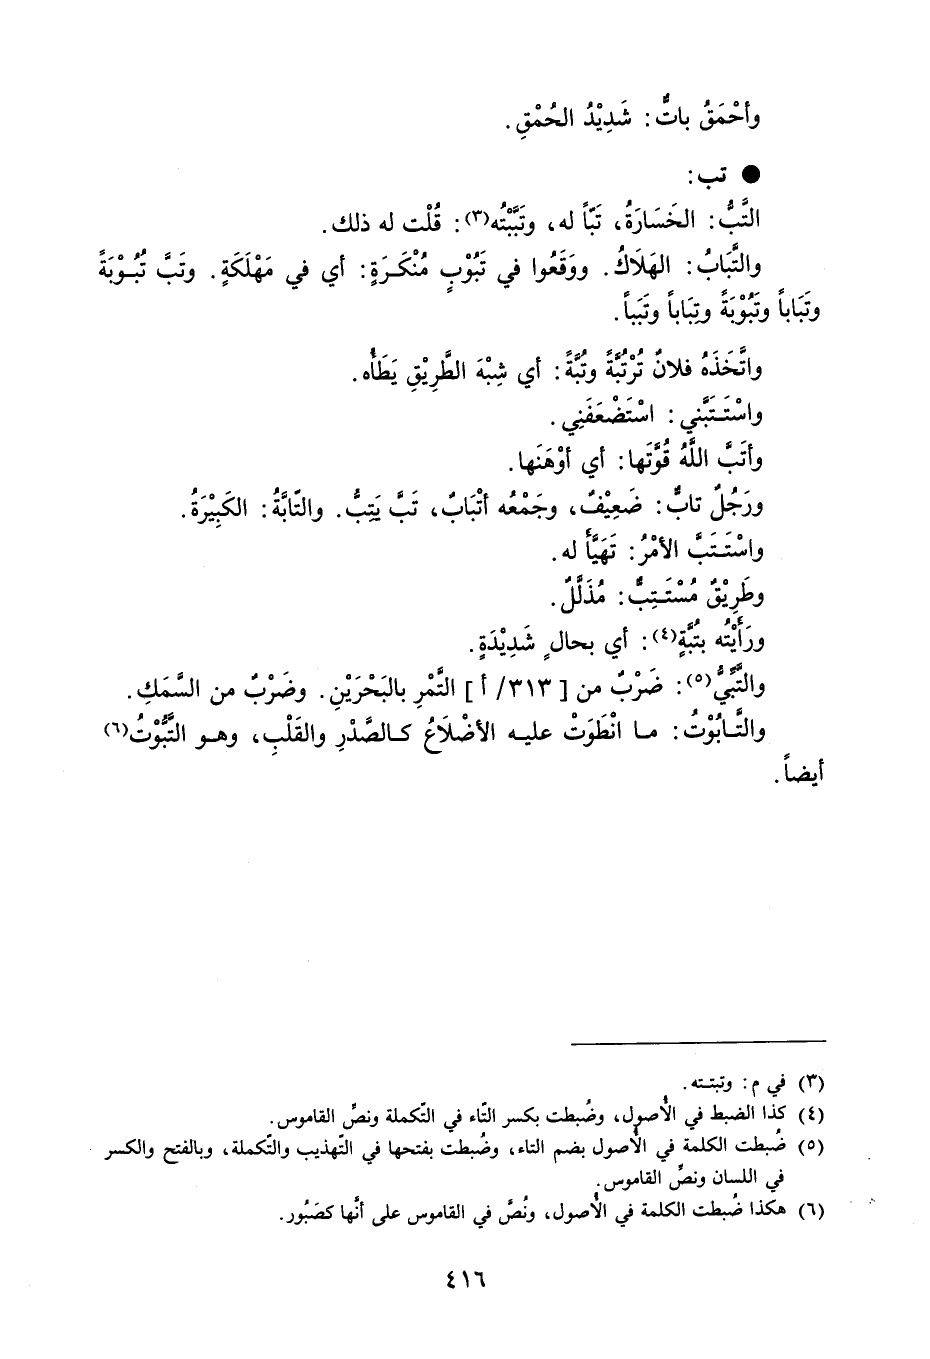 وأحْمَقُ باتٌّ: شَدِيْدُ الحُمْقِ.
● تب:
التَّبُّ: الخَسَارَةُ، تَبّاً له، وتَبَّبْتُه(٣): قُلْت له ذلك.
والتَّبَابُ: الهَلَاكُ. ووَقَعُوا في تَبُوْبٍ مُنْكَرَةٍ: أي في مَهْلَكَةٍ. وتَبَّ تُبُوْبَةً
وتَبَاباً وتَبُوْبَةً وتِبَاباً وتَبَباً.
واتَّخَذَهُ فلانٌ تُرْتُبَّةً وتُبَّةً: أي شِبْهَ الطَّرِيْقِ يَطَأُه.
واسْتَتَبَّني: اسْتَضْعَفَنِي.
وأتَبَّ اللَّهُ قُوَّتَها: أي أوْهَنَها.
ورَجُلٌ تابٌّ: ضَعِيْفٌ، وجَمْعُه أتْبَابٌ، تَبَّ يَتِبُّ. والتّابَّةُ: الكَبِيْرَةُ.
واسْتَتَبَّ الأمْرُ: تَهَيَّأَ له.
وطَرِيْقٌ مُسْتَتِبٌّ: مُذَلَّلٌ.
ورَأَيْتُه بتُبَّةٍ(٤): أي بحالٍ شَدِيْدَةٍ.
والتُّبِّيُّ(٥): ضَرْبٌ من [٣١٣/ أ] التَّمْرِ بالبَحْرَيْنِ. وضَرْبٌ من السَّمَكِ.
والتَّابُوْتُ: ما انْطَوَتْ عليه الأضْلَاعُ كالصَّدْرِ والقَلْبِ، وهو التُّبُّوْتُ(٦)
أيضاً.
(٣) في م: وتبتته.
(٤) كذا الضبط في الأُصول، وضُبطت بكسر التّاء في التّكملة ونصِّ القاموس.
(٥) ضُبطت الكلمة في الأُصول بضم التاء، وضُبطت بفتحها في التّهذيب والتّكملة، وبالفتح والكسر
في اللسان ونصِّ القاموس.
(٦) هكذا ضُبطت الكلمة في الأُصول، ونُصَّ في القاموس على أنَّها كصَبُور.
٤١٦